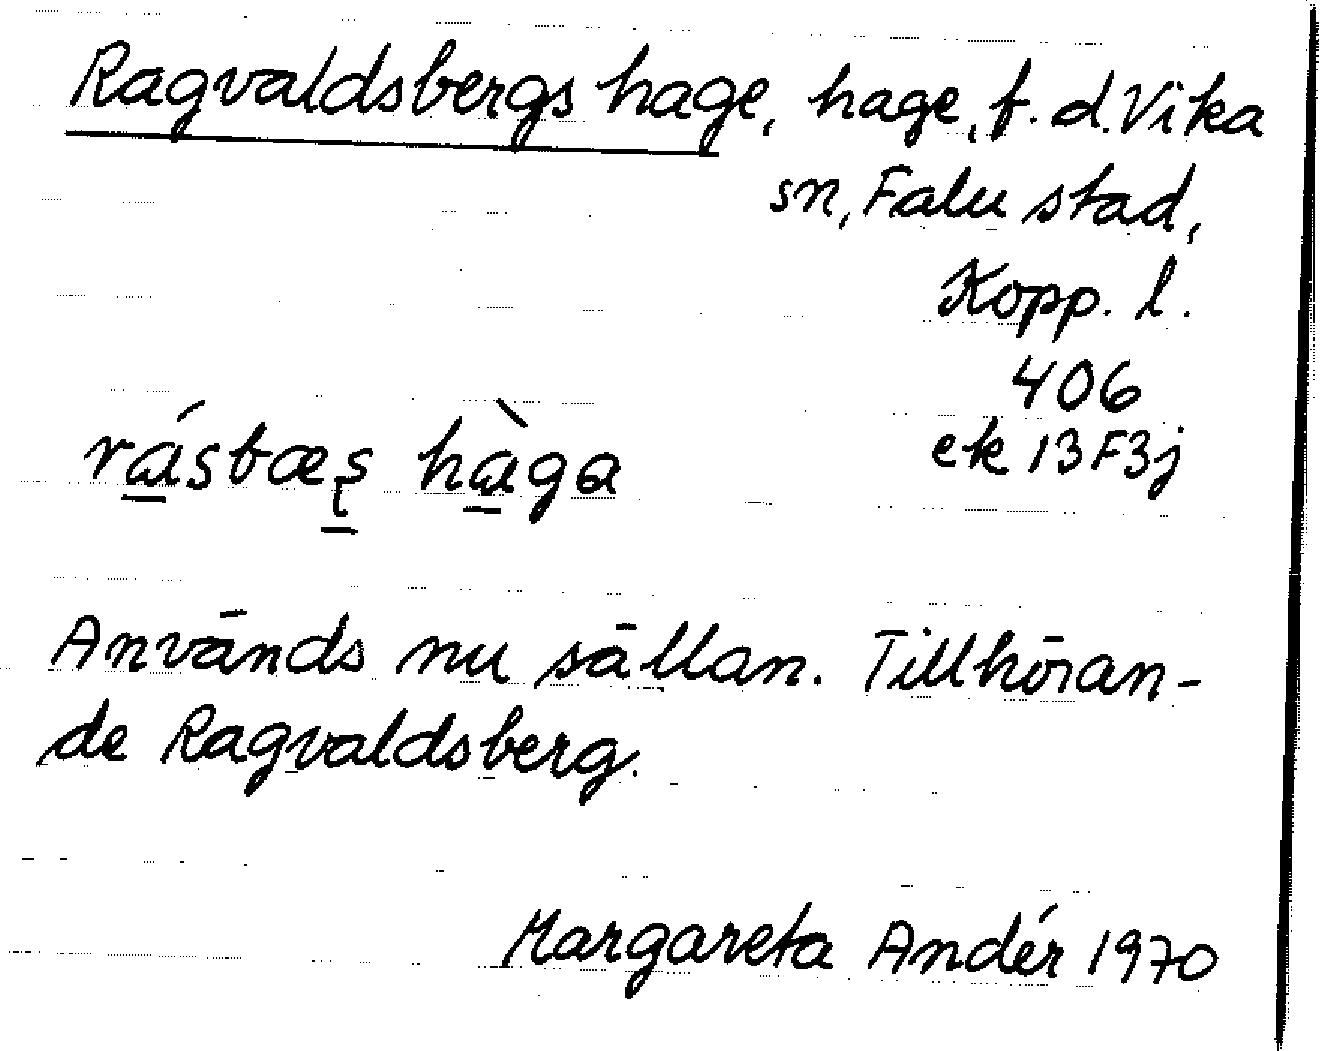 Ragvaldsbergs hage, hage, f. d. Vika
sn, Falu stad,
Kopp. l.
406
ek 13F3j
rásbæʂ hàga
Används nu sällan. Tillhöran-
de Ragvaldsberg.
Margareta Andér 1970